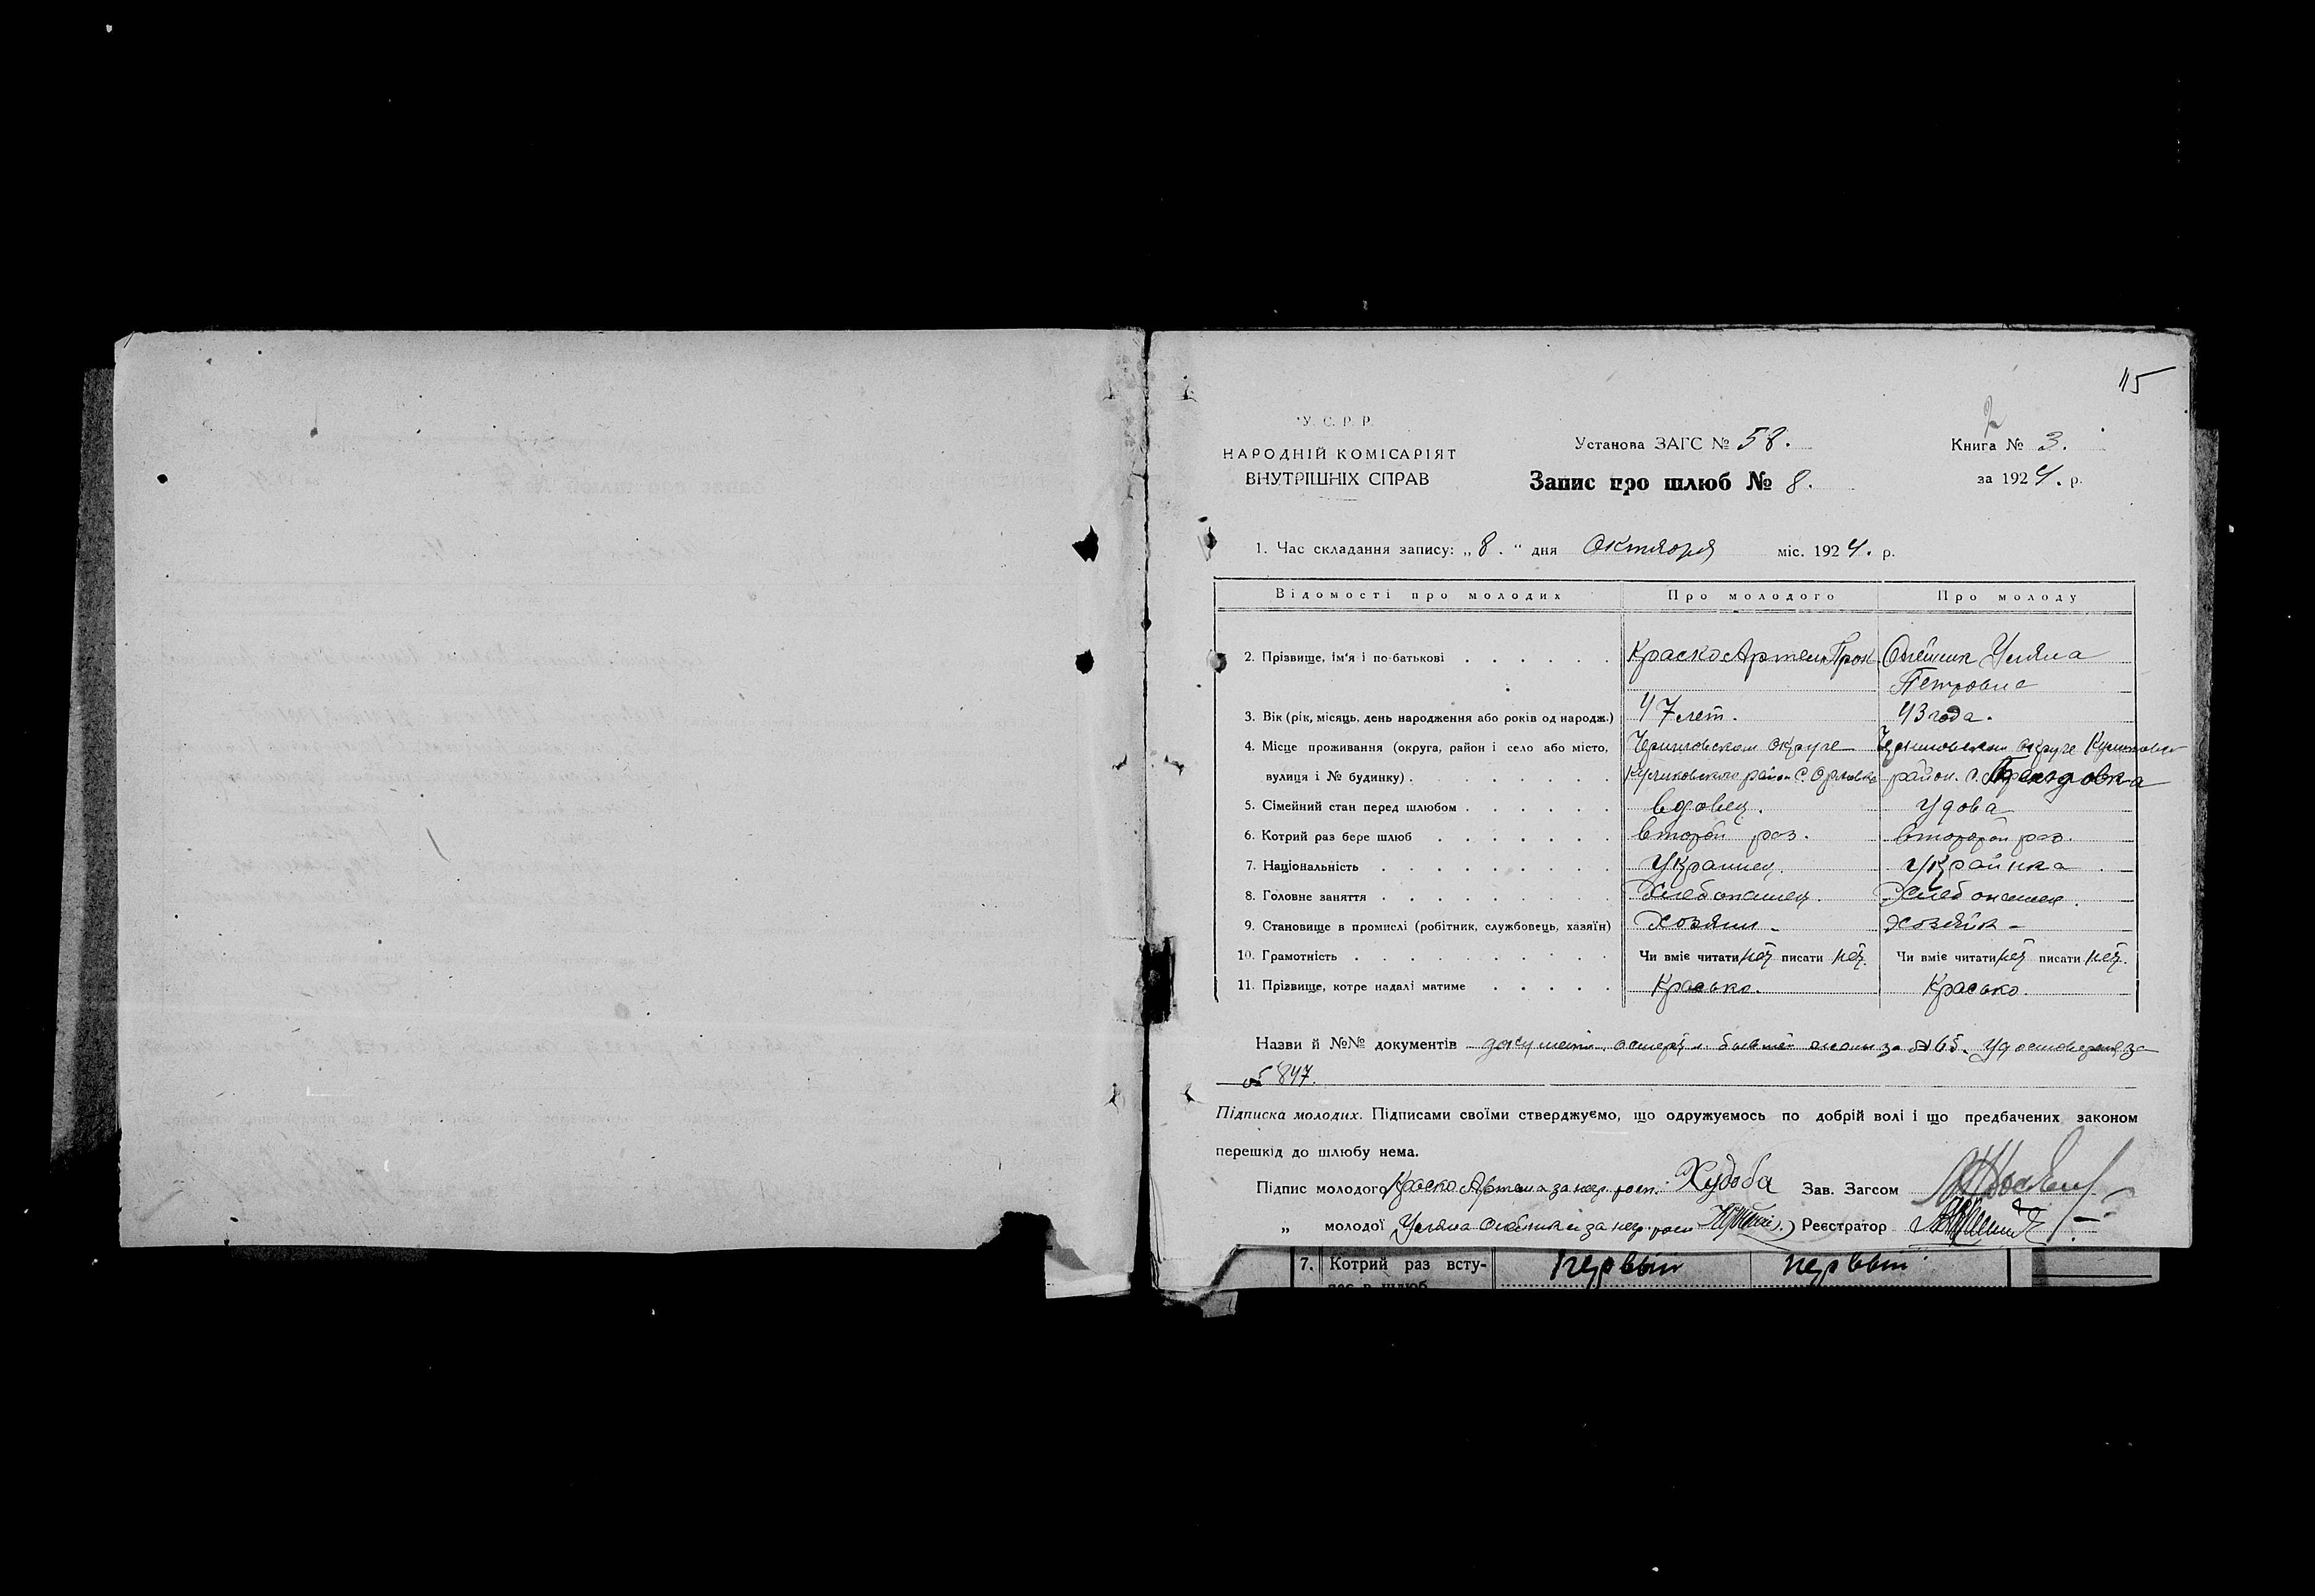 115
2
У. С. Р. Р.
НАРОДНІЙ КОМІСАРІЯТ
ВНУТРІШНІХ СПРАВ
Установа ЗАГС № 58.
Запис про шлюб № 8.
Книга № 3.
за 1924. р.
1. Час складання запису: „8." дня Октября міс. 1924. р.
Відомості про молодих Про молодого Про молоду
2. Прізвище, ім'я і по-батькові Краско Артем Прок. Олейник Уляна
Петровна
3. Вік (рік, місяць, день народження або років од народж.) 47 лет. 43 года.
4. Місце проживання (округа, район і село або місто, Черниговском округе Черниговском округе
вулиця і № будинку) район С. Орловка район. с.
5. Сімейний стан перед шлюбом вдовец. удова
6. Котрий раз бере шлюб второй раз. второй раз.
7. Національність Украинец. Украйинка
8. Головне заняття Хлебопашец. Хлебопашец.
9. Становище в промислі (робітник, службовець, хазяїн) Хозяин - хозяйк -
10. Грамотність Чи вміє читати нет писати нет. Чи вміє читати нет писати нет.
11. Прізвище, котре надалі матиме Красько. Красько.
Назви й №№ документів за № 65. за
№ 847.
Підписка молодих. Підписами своїми стверджуємо, що одружуємось по добрій волі і що предбачених законом
перешкід до шлюбу нема.
Підпис молодого Краско Артема за нер. росп. Худоба Зав. Загсом
„ молодої Уляна за нер. росп Реєстратор
7. Котрий раз всту- первый первый